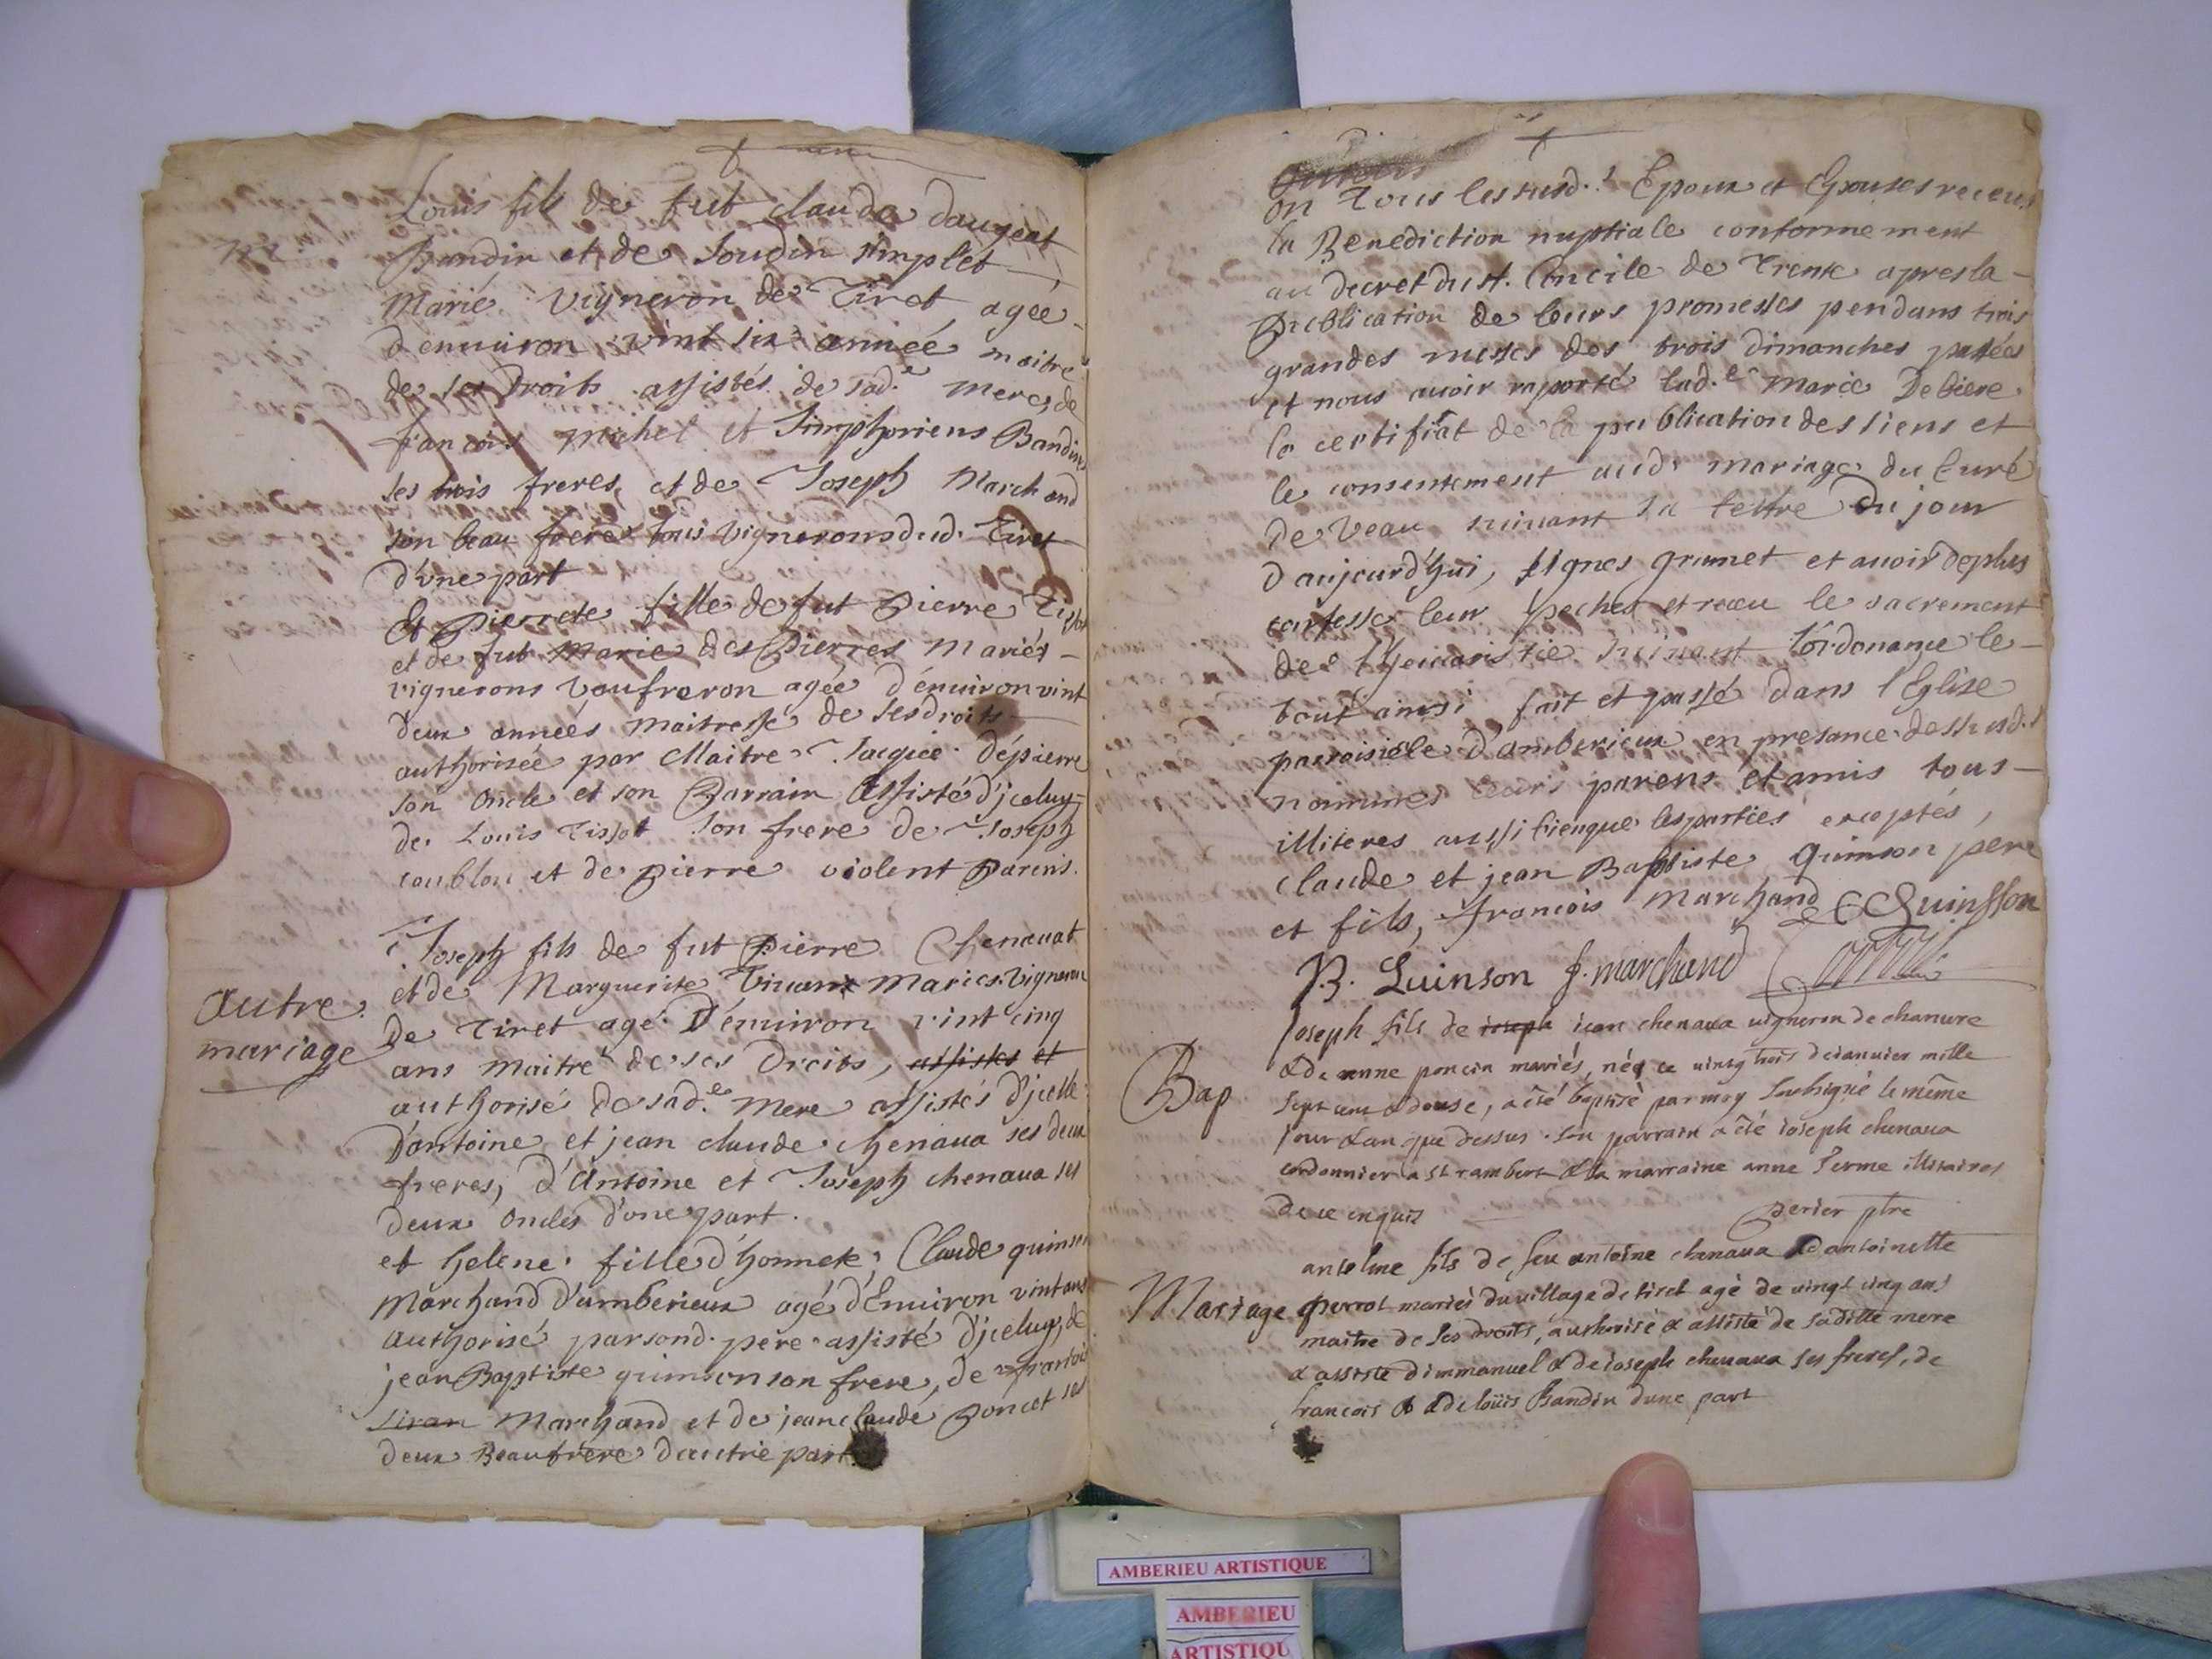 Louis fils de fut claude daugeat
Bandin et de Soudin simplet
Marié vigneron de Tiret agée
d'enuiron vint six année maitre
de ses Droits assistés de sad.e Mere, de
francois Michel et Simphoriens Bandin
ses trois freres, et de Joseph Marchand
son beau frere tous vignerons dud. Tiret
d'vne part
Et Pierrete fille de fut Pierre Tissot
et de fut Marie des Pierres mariés
vignerons Vaufreron agée d'enuiron vint
deux années maitresse de ses droits
authorisée par Maitre Jacque dépierre
son oncle et son Parrain assisté d'jceluy
de Louis Tissot son frere de Joseph
coublou et de pierre violent Parens.
Joseph fils de fut Pierre Chenauat
et de Marguerite mariés vigneron
autre mariage
de Tiret agé D'enuiron vint cinq
ans maitre de ses Droits, assistes et
authorisé de sad.e Mere assistés D'jcelle
D'antoine et jean claude chenaua ses deux
freres, d'Antoine et Joseph chenaua ses
deux oncles d'vne part.
et helene fille d'honnete Claude quinson
Marchand D'amberieux agé d'Enuiron vint ans
authorisé par sond. pere assisté d'jceluy, de
jean Baptiste quinson son frere, de francois
Marchand et de jean claude Poncet ses
deux Beaufrere d'autre part
on Tous les susd.s Epoux et Epouses receus
la Benediction nuptiale conformement
au decret du st. Concile de Trente apres la
Publication de leurs promesses pendans trois
grandes messes des trois dimanches passées
et nous auoir raporté lad.e Marie Debiere
le certifiat de la publication des siens et
le consentement aud. mariage du Curé
de Veau suiuant sa lettre Du jour
d'aujourd'hui, signes grumet et auoir deplus
confesse leur peches et receu le sacrement
de l'Heucaristie suiuant l'ordonance le
tout ainsi fait et passé dans l'Eglise
parroisiële d'amberieux en presance dessusd.s
nommes leurs parens et amis tous
illiteres aussi bien que les parties exceptés,
claude et jean Baptiste quinson pere
et fils, francois Marchand C Quinsson
B. Quinson f. marchand
Joseph fils de joseph jean chenaua uigneron de chanure
& de anne poncin mariés, né ce uingt trois de ianuier mille
Bap
sept cent & douse, a été baptisé par moy soubsigné le même
jour & an que dessus. son parrain a été ioseph chenaua
cordonnier a st rambert & la marraine anne ferme illitaires
de ce enquis
perier ptre
anselme fils de feu antoine chenaua & d'antoinette
Mariage perrot mariés du uillage de tiret agé de uingt cinq ans
maitre de ses droits, authorisé & assisté de saditte mere
& assisté d'immanuel & de ioseph chenaua ses freres, de
francois & de loüis Bandin dune part
AMBERIEU ARTISTIQUE
AMBERIEU
ARTISTIQU